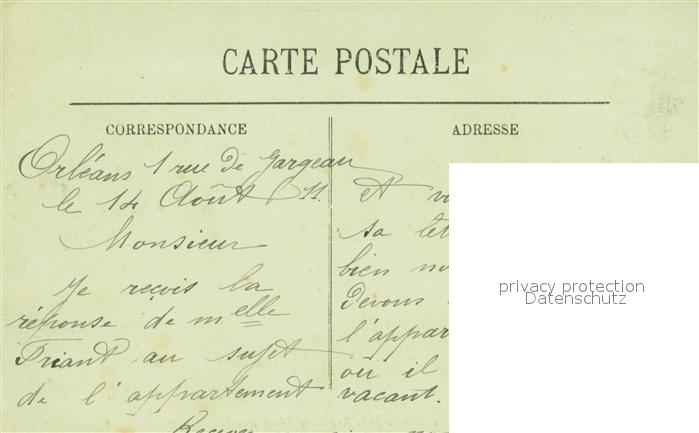 CARTE POSTALE
CORRESPONDANCE
ADRESSE
Orléans 1 rue de Gargeau
le 14 Août 11.
Monsieur
Je reçois la
réponse de melle
Friant au sujet
de l'appartement
et
sa
bien
devons
l'appar
où il
vacant.
privacy protection
Datenschutz